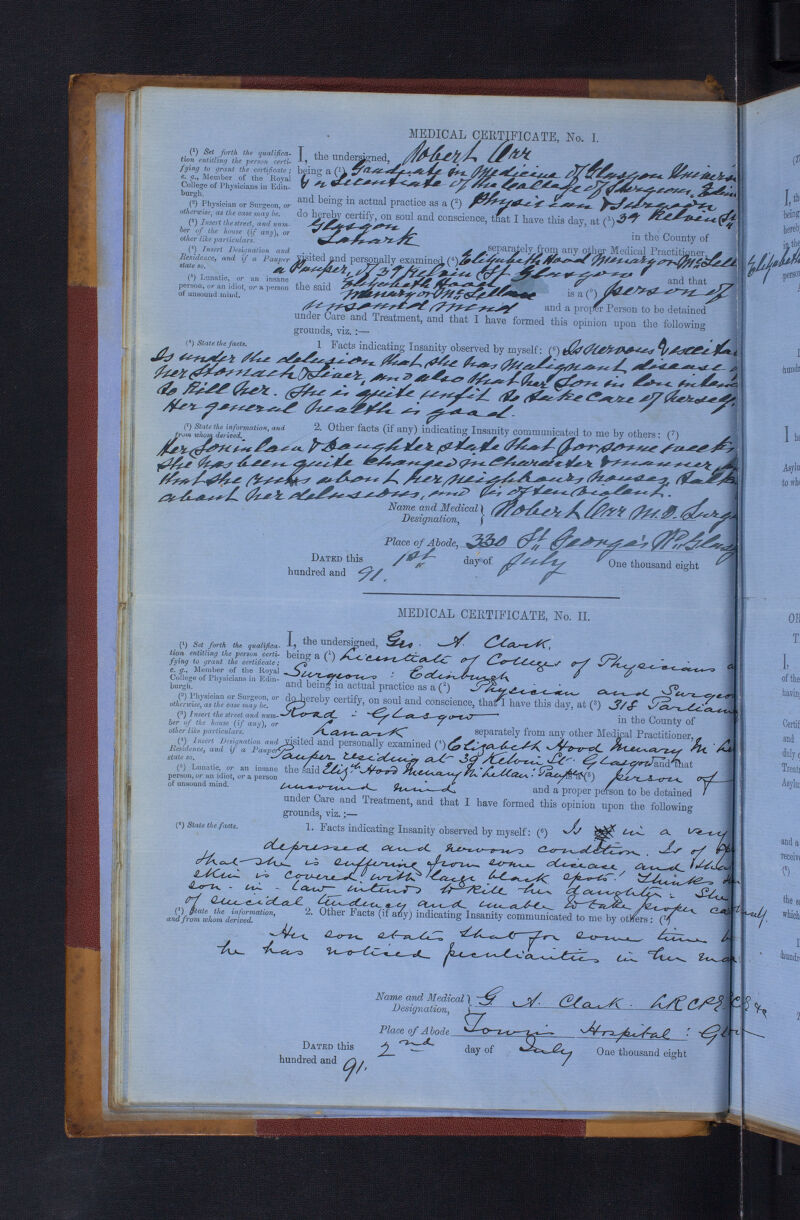 MEDICAL CERTIFICATE, No. I.
(¹) Set forth the qualifica-
tion entitling the person certi-
fying to grant the certificate;
e. g., Member of the Royal
College of Physicians in Edin-
burgh.
(²) Physician or Surgeon, or
otherwise, as the case may be.
(³) Insert the street, and num-
ber of the house (if any), or
other like particulars.
(⁴) Insert Designation and
Residence, and if a Pauper
state so.
(⁵) Lunatic, or an insane
person, or an idiot, or a person
of unsound mind.
I, the undersigned, Robert Orr
being a (¹) Graduate in Medicine of Glasgow Univers
& a Licentiate of the College of Surgeons, Edin
and being in actual practice as a (²) Physician & Surgeon
do hereby certify, on soul and conscience, that I have this day, at (³) 39 Kelvin St.
Glasgow in the County of
Lanark separately from any other Medical Practitioner,
visited and personally examined (⁴) Elizabeth Hood Menary or McLell
a Pauper, of 39 Kelvin St Glasgow and that
the said Elizabeth Hood
Menary or McLellan is a (⁵) person of
unsound mind and a proper Person to be detained
under Care and Treatment, and that I have formed this opinion upon the following
grounds, viz. :—
(⁶) State the facts.
1 Facts indicating Insanity observed by myself: (⁶) Is nervous & excita
Is under the delusion that she has malignant disease
her stomach & liver, and also that her son in law intend
to kill her. She is quite unfit to take care of herself.
Her general health is good.
(⁷) State the information, and
from whom derived.
2. Other facts (if any) indicating Insanity communicated to me by others: (⁷)
Her Son in law & Daughter state that for some weeks
she has been quite changed in character & manner,
that she runs about her neighbours houses talk
about her delusions, and is often violent.
Name and Medical
Designation, } Robert Orr M.D. Surg
Place of Abode, 330 St George's Rd Glasg
DATED this 1st day of July One thousand eight
hundred and 91.
MEDICAL CERTIFICATE, No. II.
(¹) Set forth the qualifica-
tion entitling the person certi-
fying to grant the certificate;
e. g., Member of the Royal
College of Physicians in Edin-
burgh.
(²) Physician or Surgeon, or
otherwise, as the case may be.
(³) Insert the street and num-
ber of the house (if any), or
other like particulars.
(⁴) Insert Designation and
Residence, and if a Pauper
state so.
(⁵) Lunatic, or an insane
person, or an idiot, or a person
of unsound mind.
I, the undersigned, Geo. A. Clark.
being a (¹) Licentiate of Colleges of Physicians a
Surgeons : Edinburgh
and being in actual practice as a (²) Physician and Surgeo
do hereby certify, on soul and conscience, that I have this day, at (³) 318 Parliam
Road : Glasgow in the County of
Lanark separately from any other Medical Practitioner,
visited and personally examined (⁴) Elizabeth Hood Menary McLe
Pauper residing at 39 Kelvin St. Glasgow and that
the said Elizth Hood Menary McLellan: Pauper is a (⁵) person of
unsound mind and a proper person to be detained
under Care and Treatment, and that I have formed this opinion upon the following
grounds, viz. :—
(⁶) State the facts.
1. Facts indicating Insanity observed by myself: (⁶) Is in a very
depressed and nervous condition. Is of
that she is suffering from some disease, and tha
skin is covered with large black spots. Thinks
son-in-law intends to kill her daughter. She
of suicidal tendency and unable to take proper ca
(⁷) State the information,
and from whom derived.
2. Other Facts (if any) indicating Insanity communicated to me by others: (⁷)
Her son states that for some time
he has noticed peculiarities in her ma
Name and Medical
Designation, } G A. Clark. LRCPE
Place of Abode Towns Hospital : G
DATED this 2nd day of July One thousand eight
hundred and 91.